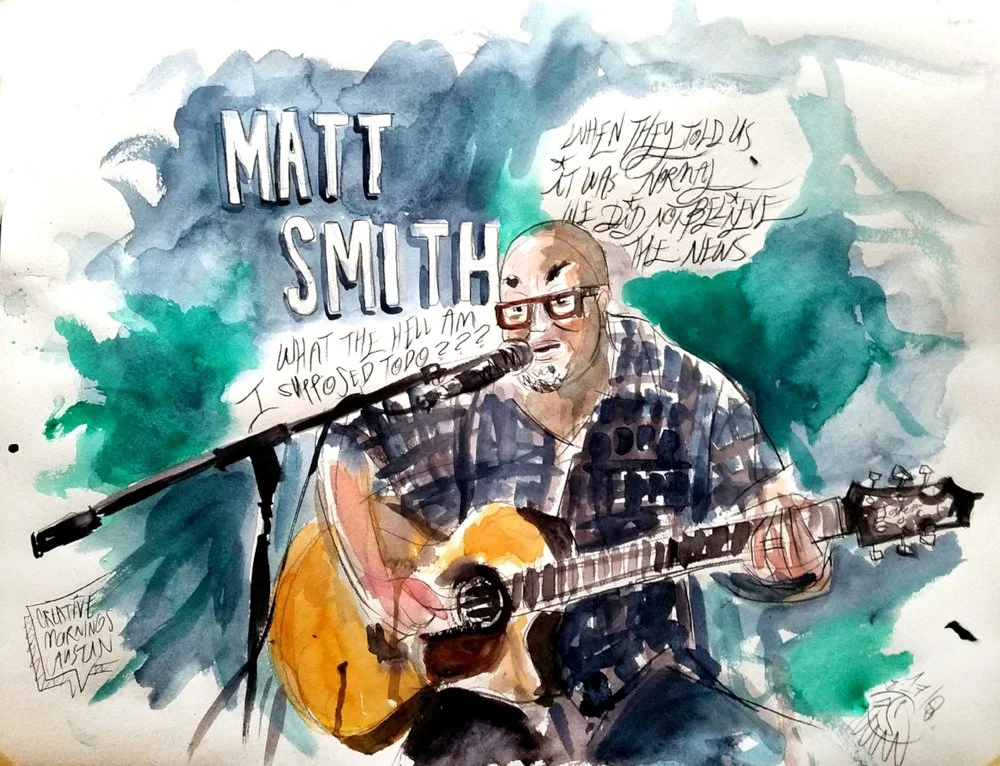 MATT
SMITH
WHAT THE HELL AM
I SUPPOSED TO DO ???
WHEN THEY TOLD US
IT WAS NORMAL
WE DID NOT BELIEVE
THE NEWS
CREATIVE
MORNINGS
AUSTIN